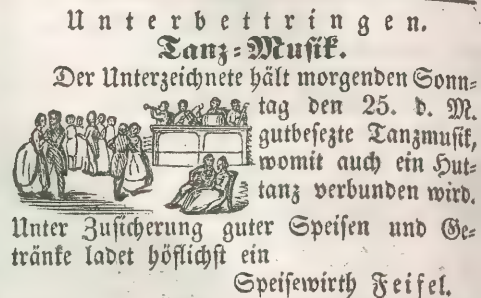 Unterbettringen.
Tanz-Musik.
Der Unterzeichnete hält morgenden Sonn-
tag den 25. d. M.
gutbesezte Tanzmusik,
womit auch ein Hut-
tanz verbunden wird.
Unter Zusicherung guter Speisen und Ge-
tränke ladet höflichst ein
Speisewirth Feifel.